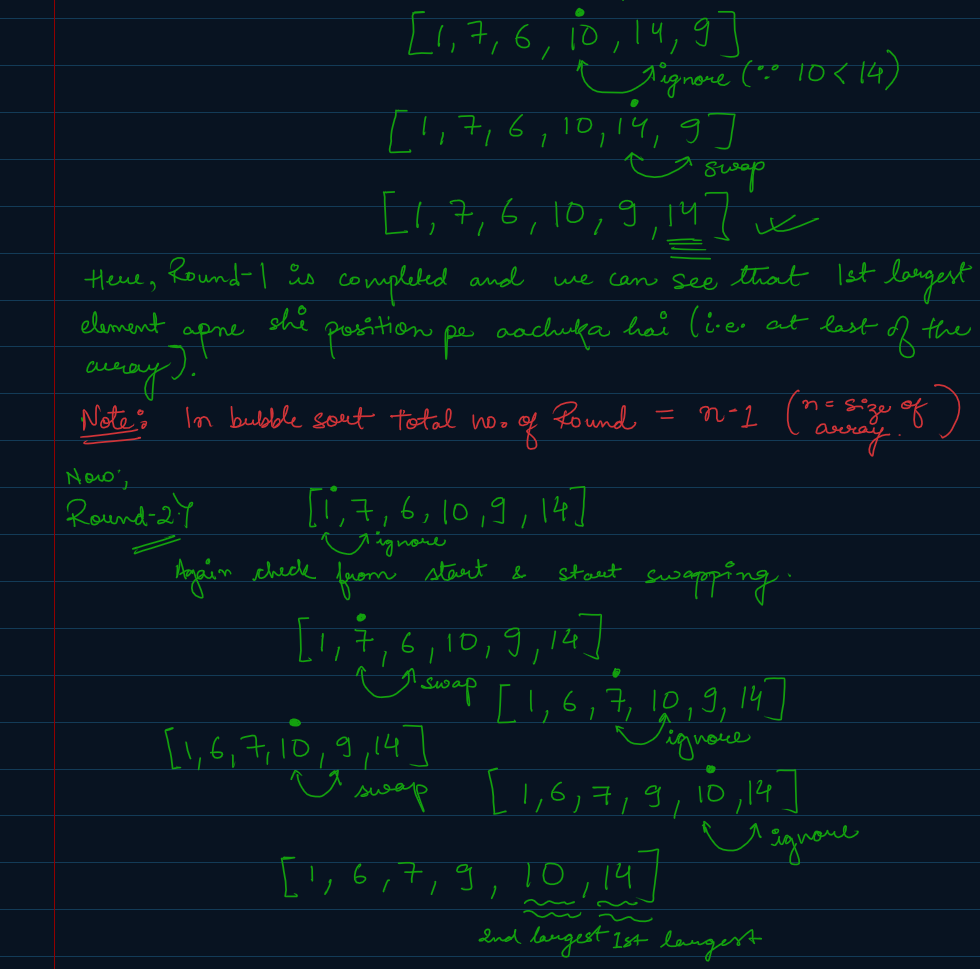 [1, 7, 6, 10, 14, 9]
ignore (∵ 10 < 14)
[1, 7, 6, 10, 14, 9]
swap
[1, 7, 6, 10, 9, 14] ✓
Here, Round-1 is completed and we can see that 1st largest
element apne shi position pe aachuka hai (i.e. at last of the
array).
Note: In bubble sort total no. of Round = n-1 (n = size of array.)
Now,
Round-2 [1, 7, 6, 10, 9, 14]
ignore
Again check from start & start swapping.
[1, 7, 6, 10, 9, 14]
swap
[1, 6, 7, 10, 9, 14]
ignore
[1, 6, 7, 10, 9, 14]
swap
[1, 6, 7, 9, 10, 14]
ignore
[1, 6, 7, 9, 10, 14]
2nd largest 1st largest